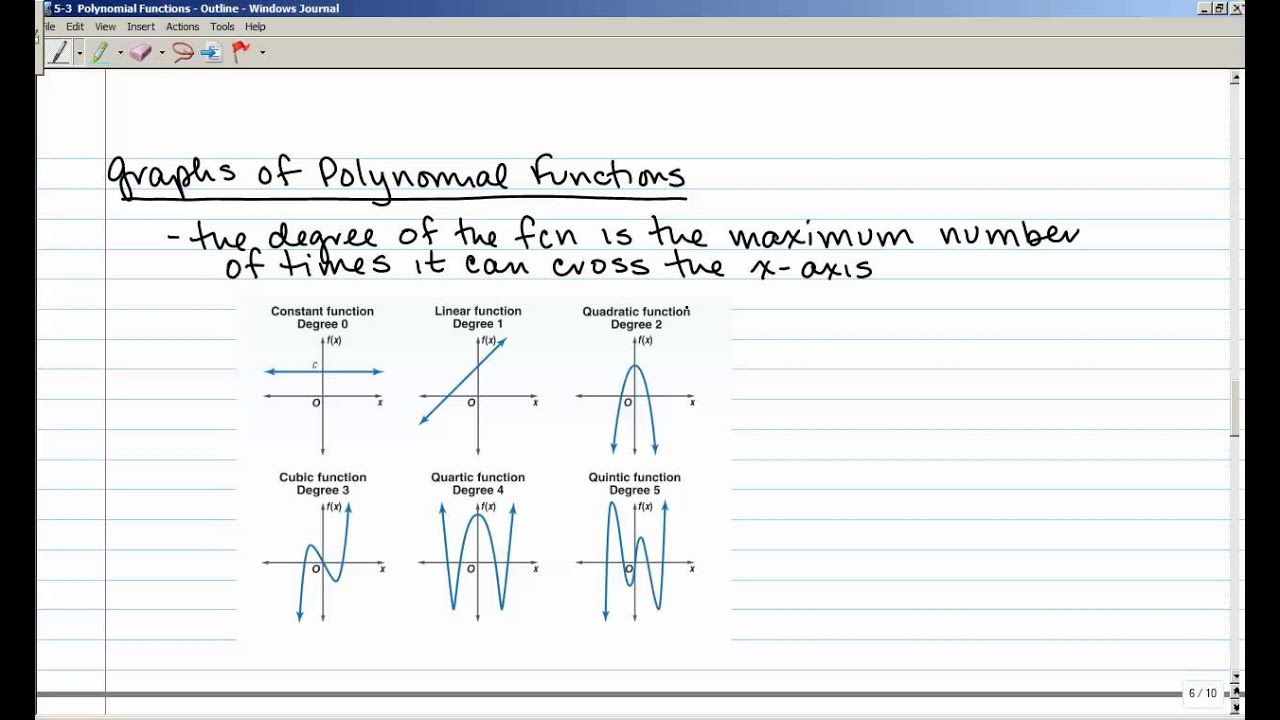 5-3 Polynomial Functions - Outline - Windows Journal
File Edit View Insert Actions Tools Help
Graphs of Polynomial Functions
- the degree of the fcn is the maximum number
of times it can cross the x-axis
Constant function Linear function Quadratic function
Degree 0 Degree 1 Degree 2
f(x) f(x) f(x)
c
O x O x O x
Cubic function Quartic function Quintic function
Degree 3 Degree 4 Degree 5
f(x) f(x) f(x)
O x O x O x
6 / 10